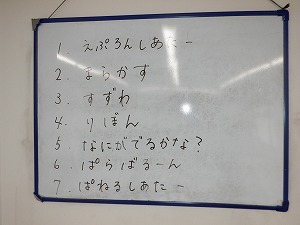 1. えぷろんしあたー
2. まらかす
3. すずわ
4. りぼん
5. なにがでるかな?
6. ぱらばるーん
7. ぱねるしあたー